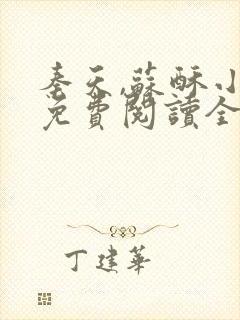 奉天,蘇酥小
免費閱讀全
丁建華